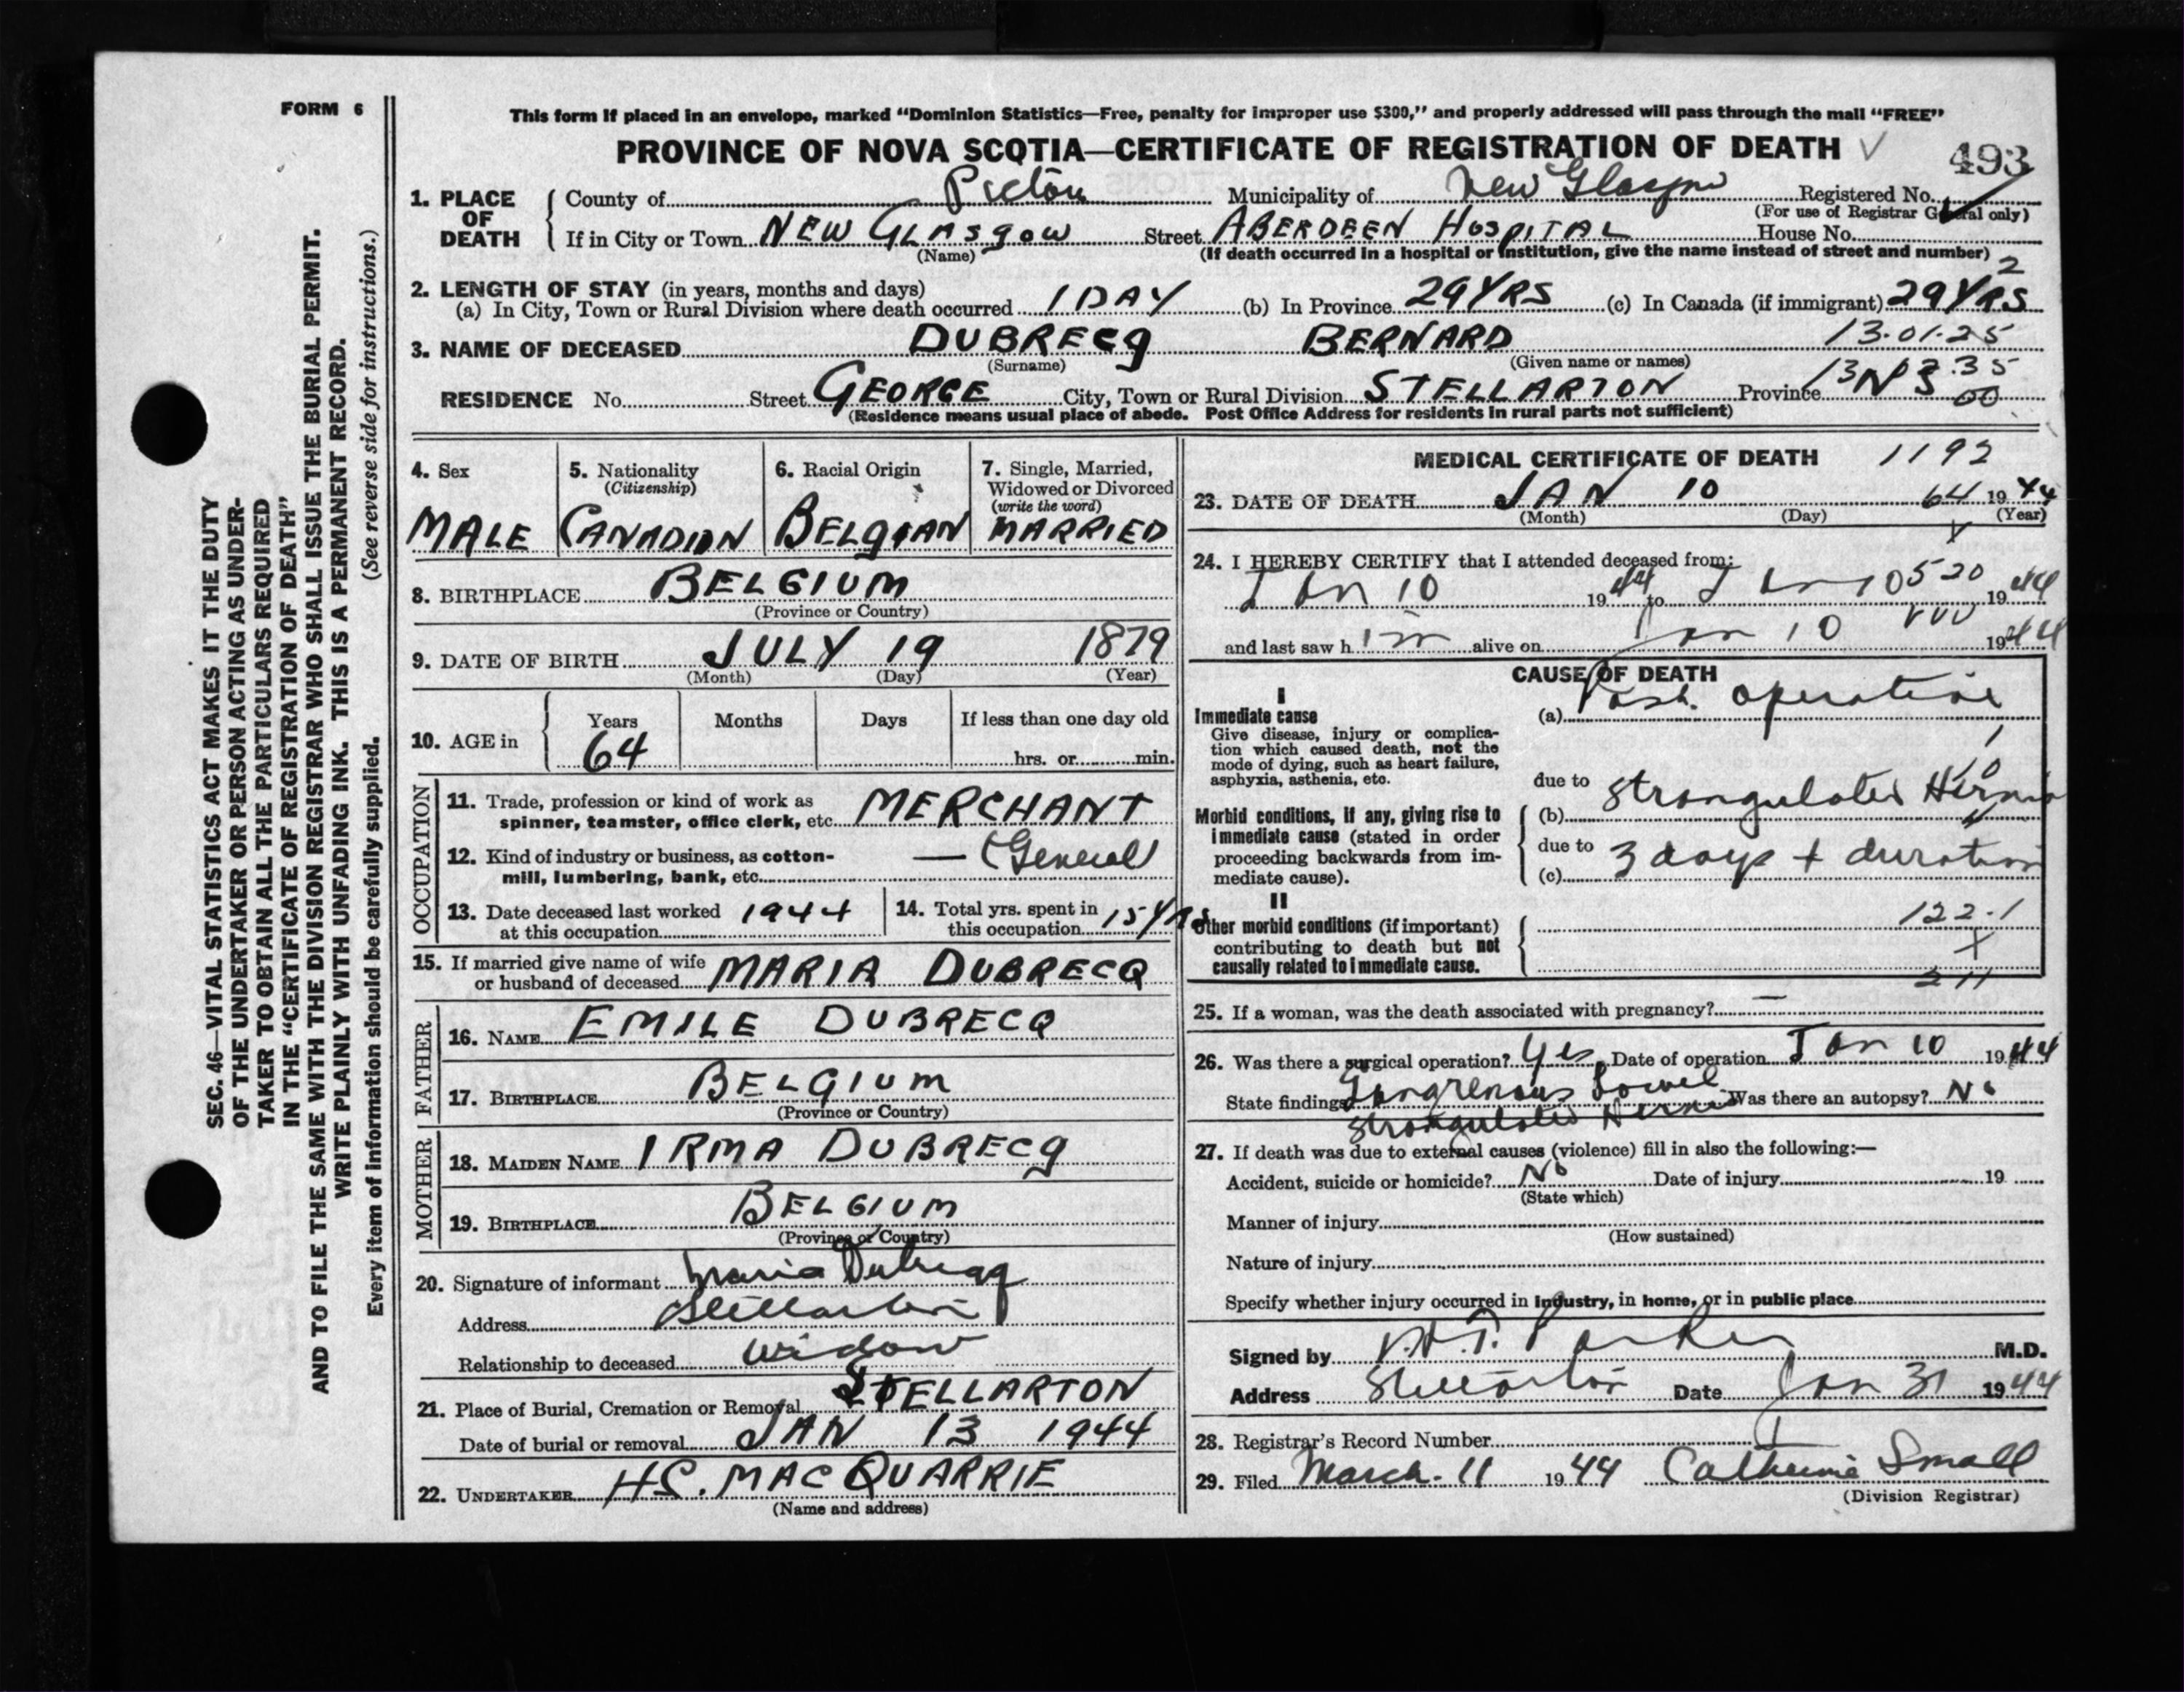 FORM 6
This form if placed in an envelope, marked "Dominion Statistics—Free, penalty for improper use $300," and properly addressed will pass through the mail "FREE"
PROVINCE OF NOVA SCOTIA—CERTIFICATE OF REGISTRATION OF DEATH
493
1. PLACE OF DEATH
County of Pictou Municipality of New Glasgow Registered No.
(For use of Registrar General only)
If in City or Town NEW GLASGOW Street ABERDEEN HOSPITAL House No.
(Name) (If death occurred in a hospital or institution, give the name instead of street and number)
2
2. LENGTH OF STAY (in years, months and days)
(a) In City, Town or Rural Division where death occurred 1 DAY (b) In Province 29 YRS (c) In Canada (if immigrant) 29 YRS
13.01.25
3. NAME OF DECEASED DUBRECQ BERNARD
(Surname) (Given name or names)
RESIDENCE No. Street GEORGE City, Town or Rural Division STELLARTON Province N S
(Residence means usual place of abode. Post Office Address for residents in rural parts not sufficient)
4. Sex
MALE
5. Nationality
(Citizenship)
CANADIAN
6. Racial Origin
BELGIAN
7. Single, Married,
Widowed or Divorced
(write the word)
MARRIED
8. BIRTHPLACE BELGIUM
(Province or Country)
9. DATE OF BIRTH JULY 19 1879
(Month) (Day) (Year)
10. AGE in
Years Months Days If less than one day old
64 hrs. or min.
OCCUPATION
11. Trade, profession or kind of work as
spinner, teamster, office clerk, etc. MERCHANT
12. Kind of industry or business, as cotton-
mill, lumbering, bank, etc. — (General)
13. Date deceased last worked
at this occupation 1944
14. Total yrs. spent in
this occupation 15 YRS
15. If married give name of wife
or husband of deceased MARIA DUBRECQ
FATHER
16. NAME EMILE DUBRECQ
17. BIRTHPLACE BELGIUM
(Province or Country)
MOTHER
18. MAIDEN NAME IRMA DUBRECQ
19. BIRTHPLACE BELGIUM
(Province or Country)
20. Signature of informant Maria Dubrecq
Address Stellarton
Relationship to deceased widow
21. Place of Burial, Cremation or Removal STELLARTON
Date of burial or removal JAN 13 1944
22. UNDERTAKER HS. MACQUARRIE
(Name and address)
MEDICAL CERTIFICATE OF DEATH 1192
23. DATE OF DEATH JAN 10 64 1944
(Month) (Day) (Year)
24. I HEREBY CERTIFY that I attended deceased from:
Jan 10 1944 to Jan 10 520 1944
and last saw him alive on Jan 10 1944
CAUSE OF DEATH
I
Immediate cause
Give disease, injury or complica-
tion which caused death, not the
mode of dying, such as heart failure,
asphyxia, asthenia, etc.
(a) Post. operative
due to
Morbid conditions, if any, giving rise to
immediate cause (stated in order
proceeding backwards from im-
mediate cause).
(b) Strangulated Hernia
due to
(c) 3 days + duration
II
Other morbid conditions (if important)
contributing to death but not
causally related to immediate cause.
122.1
X
211
25. If a woman, was the death associated with pregnancy? —
26. Was there a surgical operation? Yes Date of operation Jan 10 1944
State findings Gangrenous bowel Was there an autopsy? No
Strangulated Hernia
27. If death was due to external causes (violence) fill in also the following:—
Accident, suicide or homicide? No Date of injury 19
(State which)
Manner of injury
(How sustained)
Nature of injury
Specify whether injury occurred in industry, in home, or in public place
Signed by Parker M.D.
Address Stellarton Date Jan 31 1944
28. Registrar's Record Number
29. Filed March 11 1944 Catherine Small
(Division Registrar)
SEC. 46—VITAL STATISTICS ACT MAKES IT THE DUTY
OF THE UNDERTAKER OR PERSON ACTING AS UNDER-
TAKER TO OBTAIN ALL THE PARTICULARS REQUIRED
IN THE "CERTIFICATE OF REGISTRATION OF DEATH"
AND TO FILE THE SAME WITH THE DIVISION REGISTRAR WHO SHALL ISSUE THE BURIAL PERMIT.
WRITE PLAINLY WITH UNFADING INK. THIS IS A PERMANENT RECORD.
Every item of information should be carefully supplied. (See reverse side for instructions.)